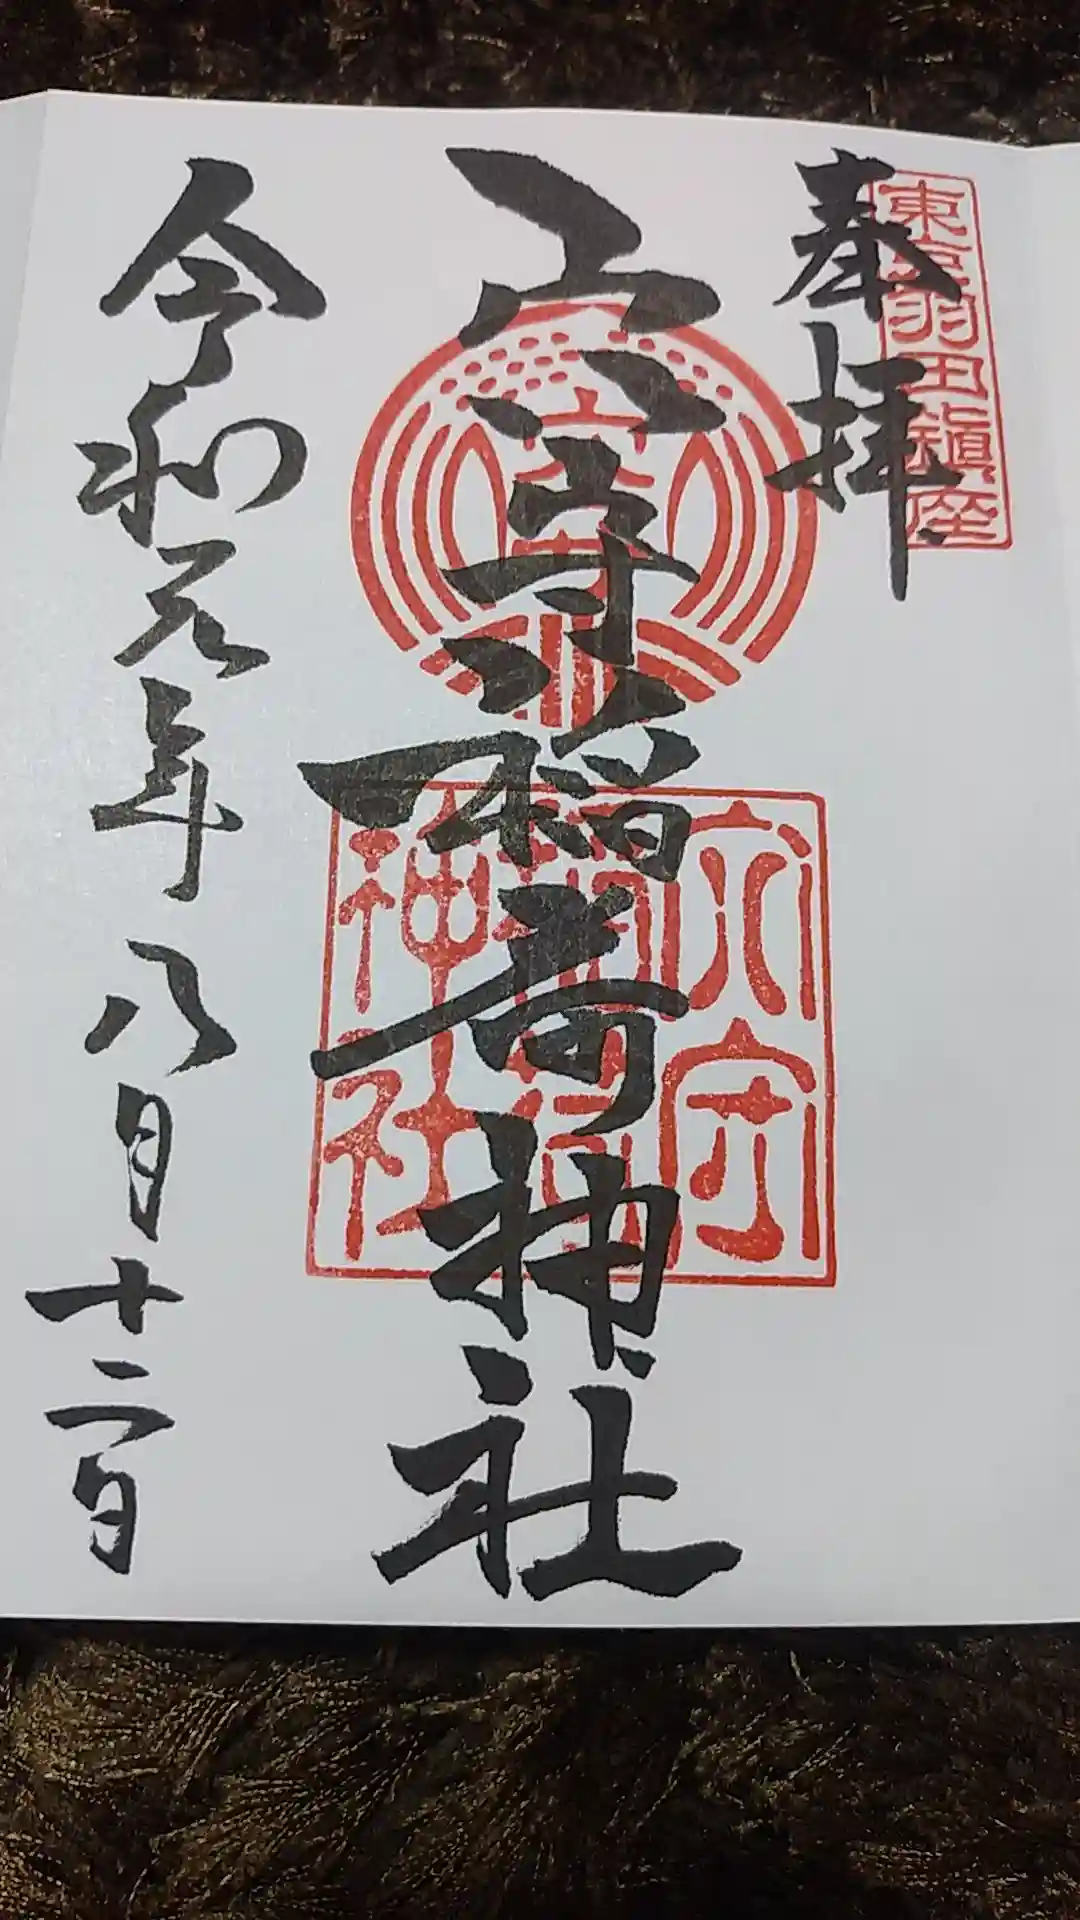 奉拝
東京羽田鎮座
穴守稲荷神社
穴守
稲荷
神社
令和元年八月十二日